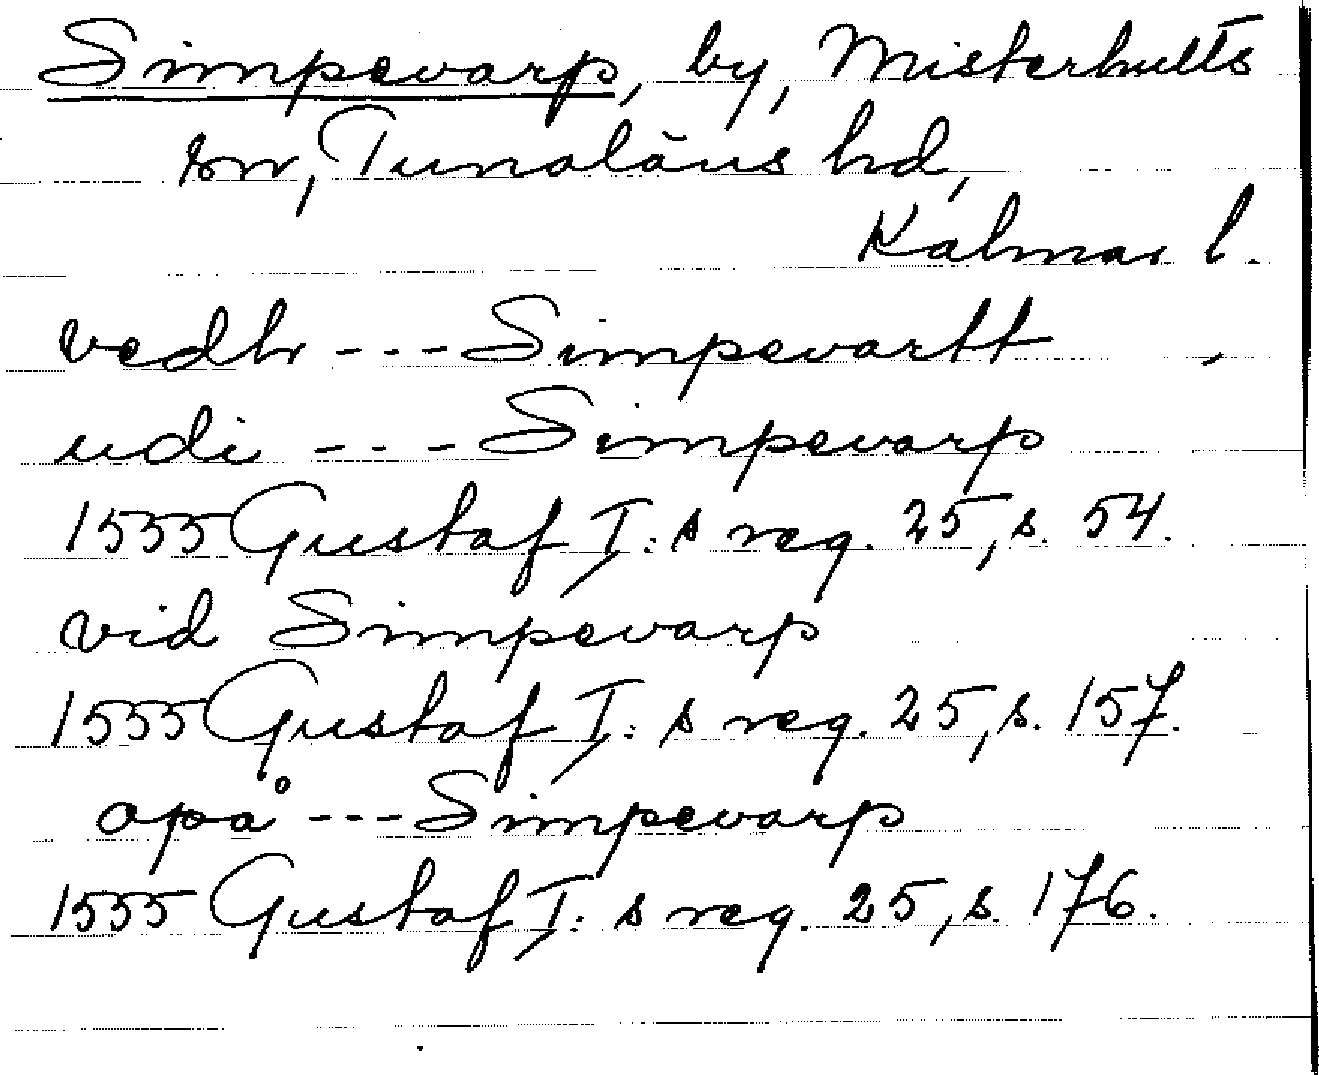 Simpevarp, by, Misterhults
sn, Tunaläns hd,
Kalmar l.
vedh --- Simpevartt
udi --- Simpevarp
1555 Gustaf I:s reg. 25, s. 54.
vid Simpevarp
1555 Gustaf I:s reg. 25, s. 157.
opå --- Simpevarp
1555 Gustaf I:s reg. 25, s. 176.